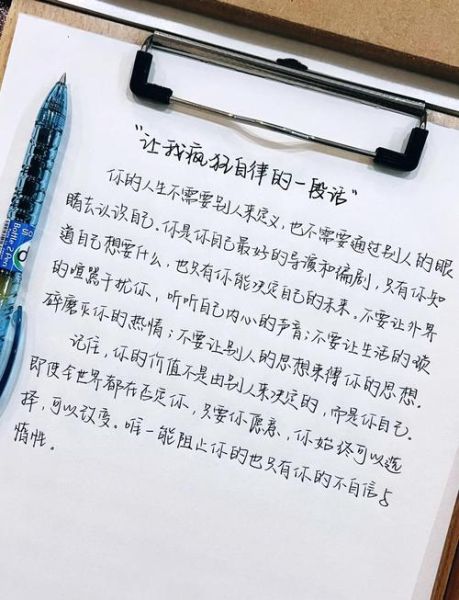 "让我疯狂自律的一段话"
你的人生不需要别人来定义,也不需要通过别人的眼
睛去认识自己。你是你自己最好的导演和编剧,只有你知
道自己想要什么,也只有你能决定自己的未来。不要让外界
的喧嚣干扰你,听听自己内心的声音;不要让生活的琐
碎磨灭你的热情;不要让别人的思想来缚你的思想.
记住,你的价值不是由别人来决定的,而是你自己。
即使全世界都在否定你,只要你愿意,你始终可以选
择,可以改变。唯一能阻止你的也只有你的不自信与
惰性。
Bottle 2 Pen